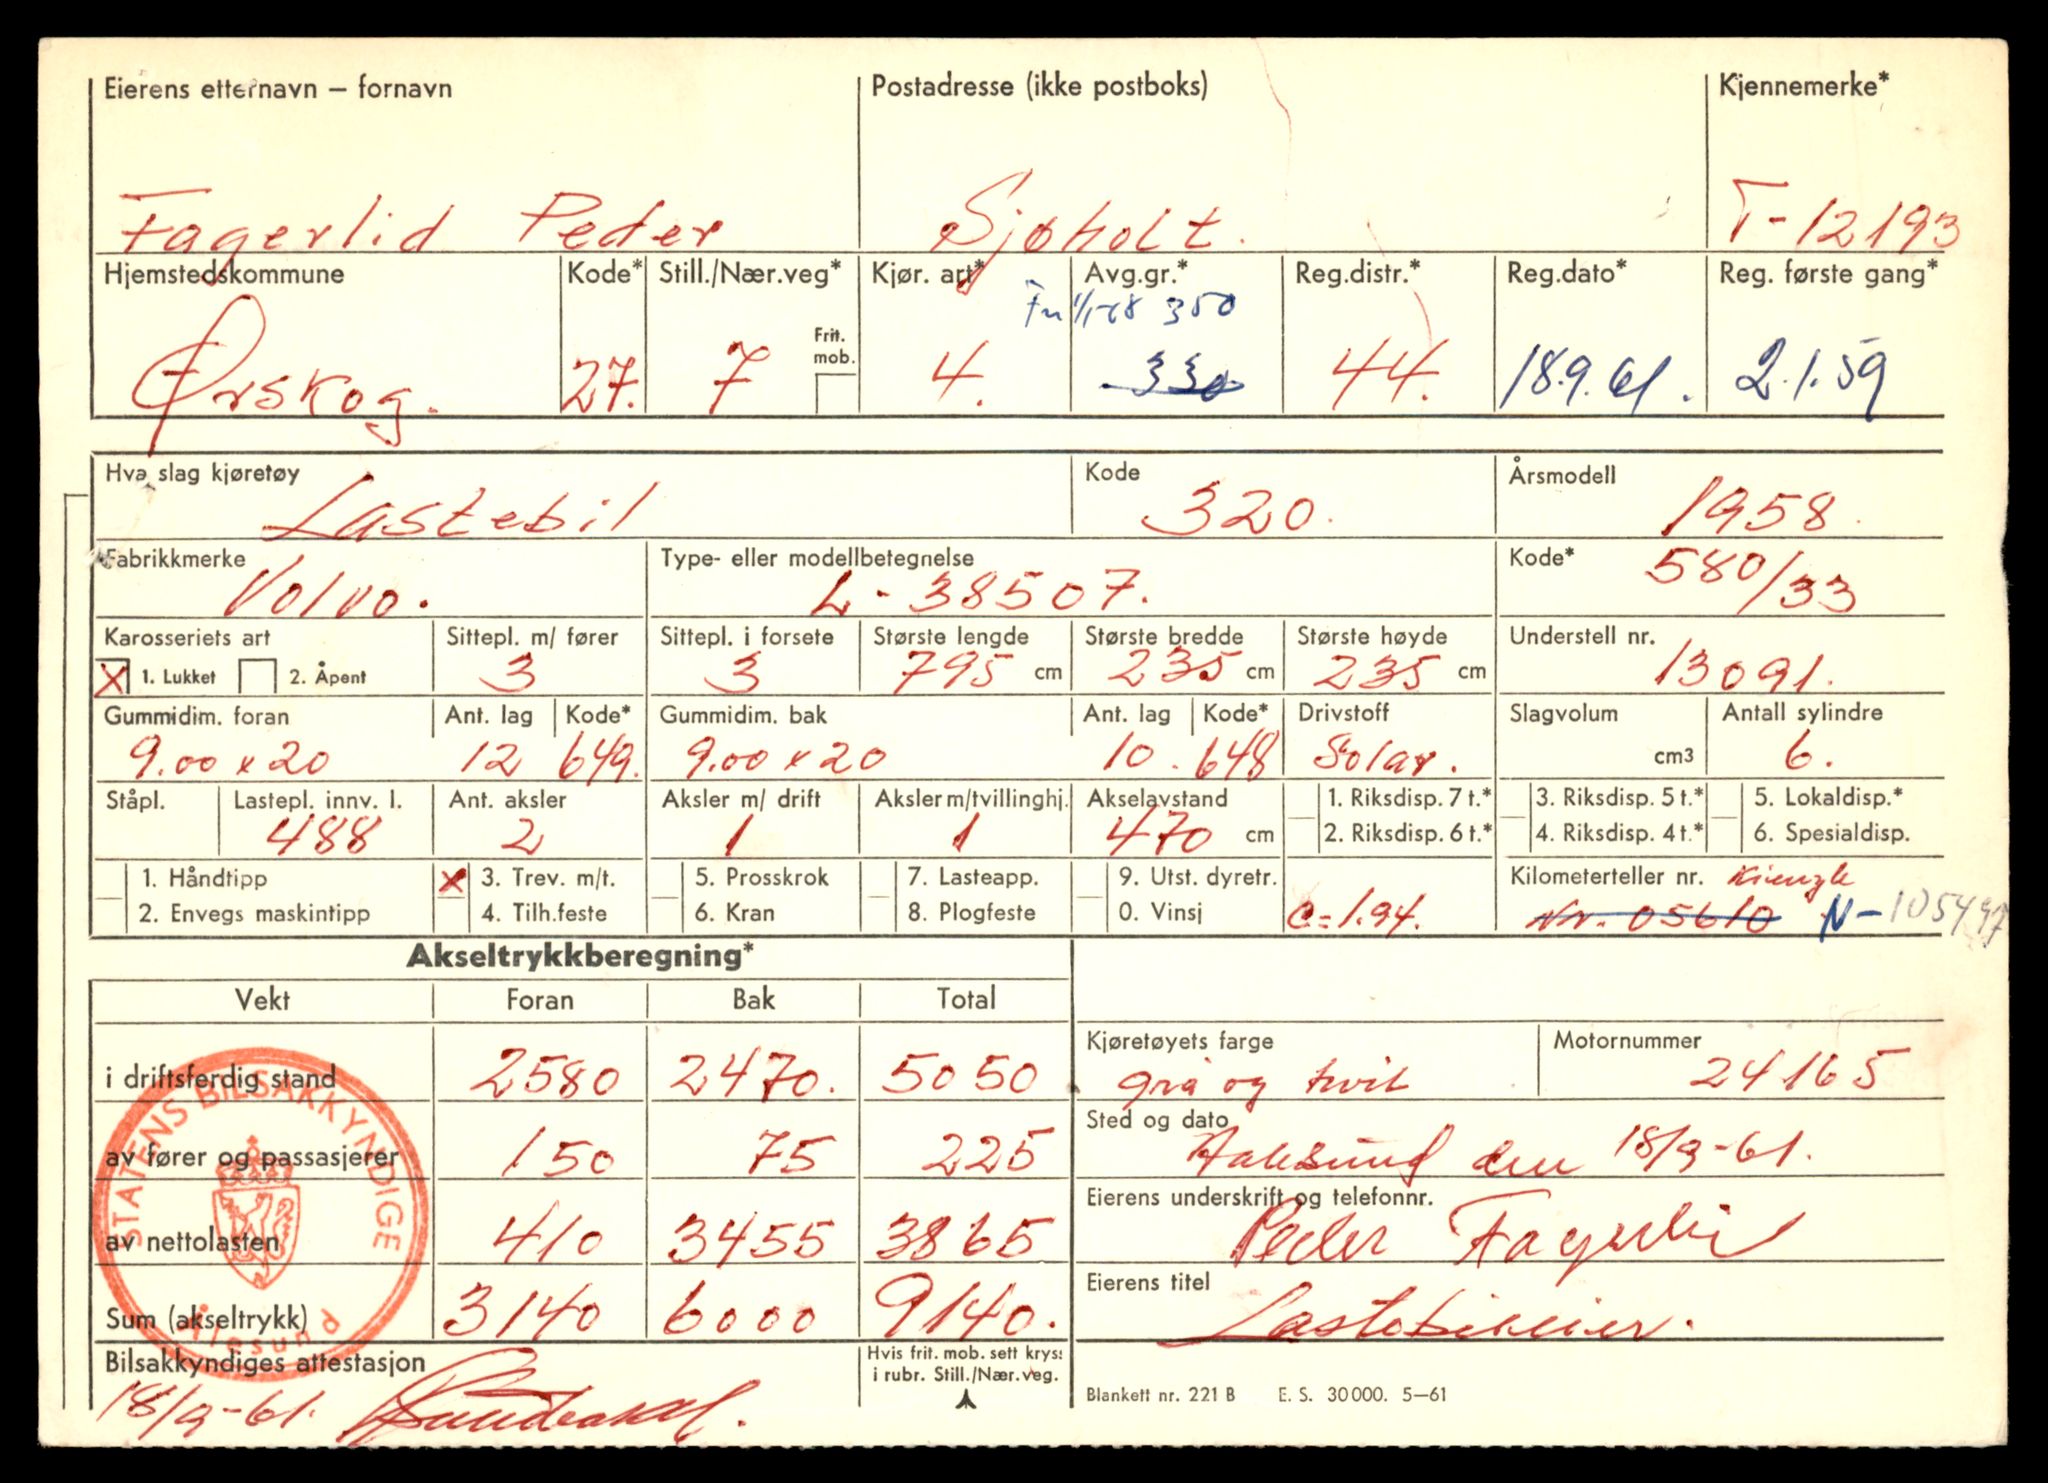 Eierens etternavn – fornavn Postadresse (ikke postboks) Kjennemerke*
Fagerlid Peder Sjøholt. T-12193
Hjemstedskommune Kode* Still./Nær.veg* Kjør. art* Avg.gr.* Reg.distr.* Reg.dato* Reg. første gang*
Frit. mob.
350
Ørskog. 27. 7 4. 330 44. 18.9.61. 2.1.59
Hva slag kjøretøy Kode Årsmodell
Lastebil 320. 1958.
Fabrikkmerke Type- eller modellbetegnelse Kode*
Volvo. L-38507. 580/33
Karosseriets art Sittepl. m/ fører Sittepl. i forsete Største lengde Største bredde Største høyde Understell nr.
X 1. Lukket 2. Åpent 3 3 795 cm 235 cm 235 cm 13091.
Gummidim. foran Ant. lag Kode* Gummidim. bak Ant. lag Kode* Drivstoff Slagvolum Antall sylindre
9.00 x 20 12 649. 9.00 x 20 10. 648 Solar. cm3 6.
Ståpl. Lastepl. innv. l. Ant. aksler Aksler m/ drift Aksler m/tvillinghj. Akselavstand 1. Riksdisp. 7 t.* 3. Riksdisp. 5 t.* 5. Lokaldisp.*
488 2 1 1 470 cm 2. Riksdisp. 6 t.* 4. Riksdisp. 4 t.* 6. Spesialdisp.
1. Håndtipp X 3. Trev. m/t. 5. Prosskrok 7. Lasteapp. 9. Utst. dyretr. Kilometerteller nr. Kienzle
2. Envegs maskintipp 4. Tilh.feste 6. Kran 8. Plogfeste 0. Vinsj C=1.94. Nr. 05610 N-
Akseltrykkberegning*
Vekt Foran Bak Total
Kjøretøyets farge Motornummer
i driftsferdig stand 2580 2470. 5050 grå og hvit 24165
Sted og dato
av fører og passasjerer 150 75 225 Aalesund den 18/9-61.
Eierens underskrift og telefonnr.
av nettolasten 410 3455 3865 Peder Fagerlid
Eierens titel
Sum (akseltrykk) 3140 6000 9140. Lastebileier.
STATENS BILSAKKYNDIGE
Ålesund
Bilsakkyndiges attestasjon Hvis frit. mob. sett kryss
i rubr. Still./Nær.veg.
18/9-61. Blankett nr. 221 B E. S. 30000. 5—61